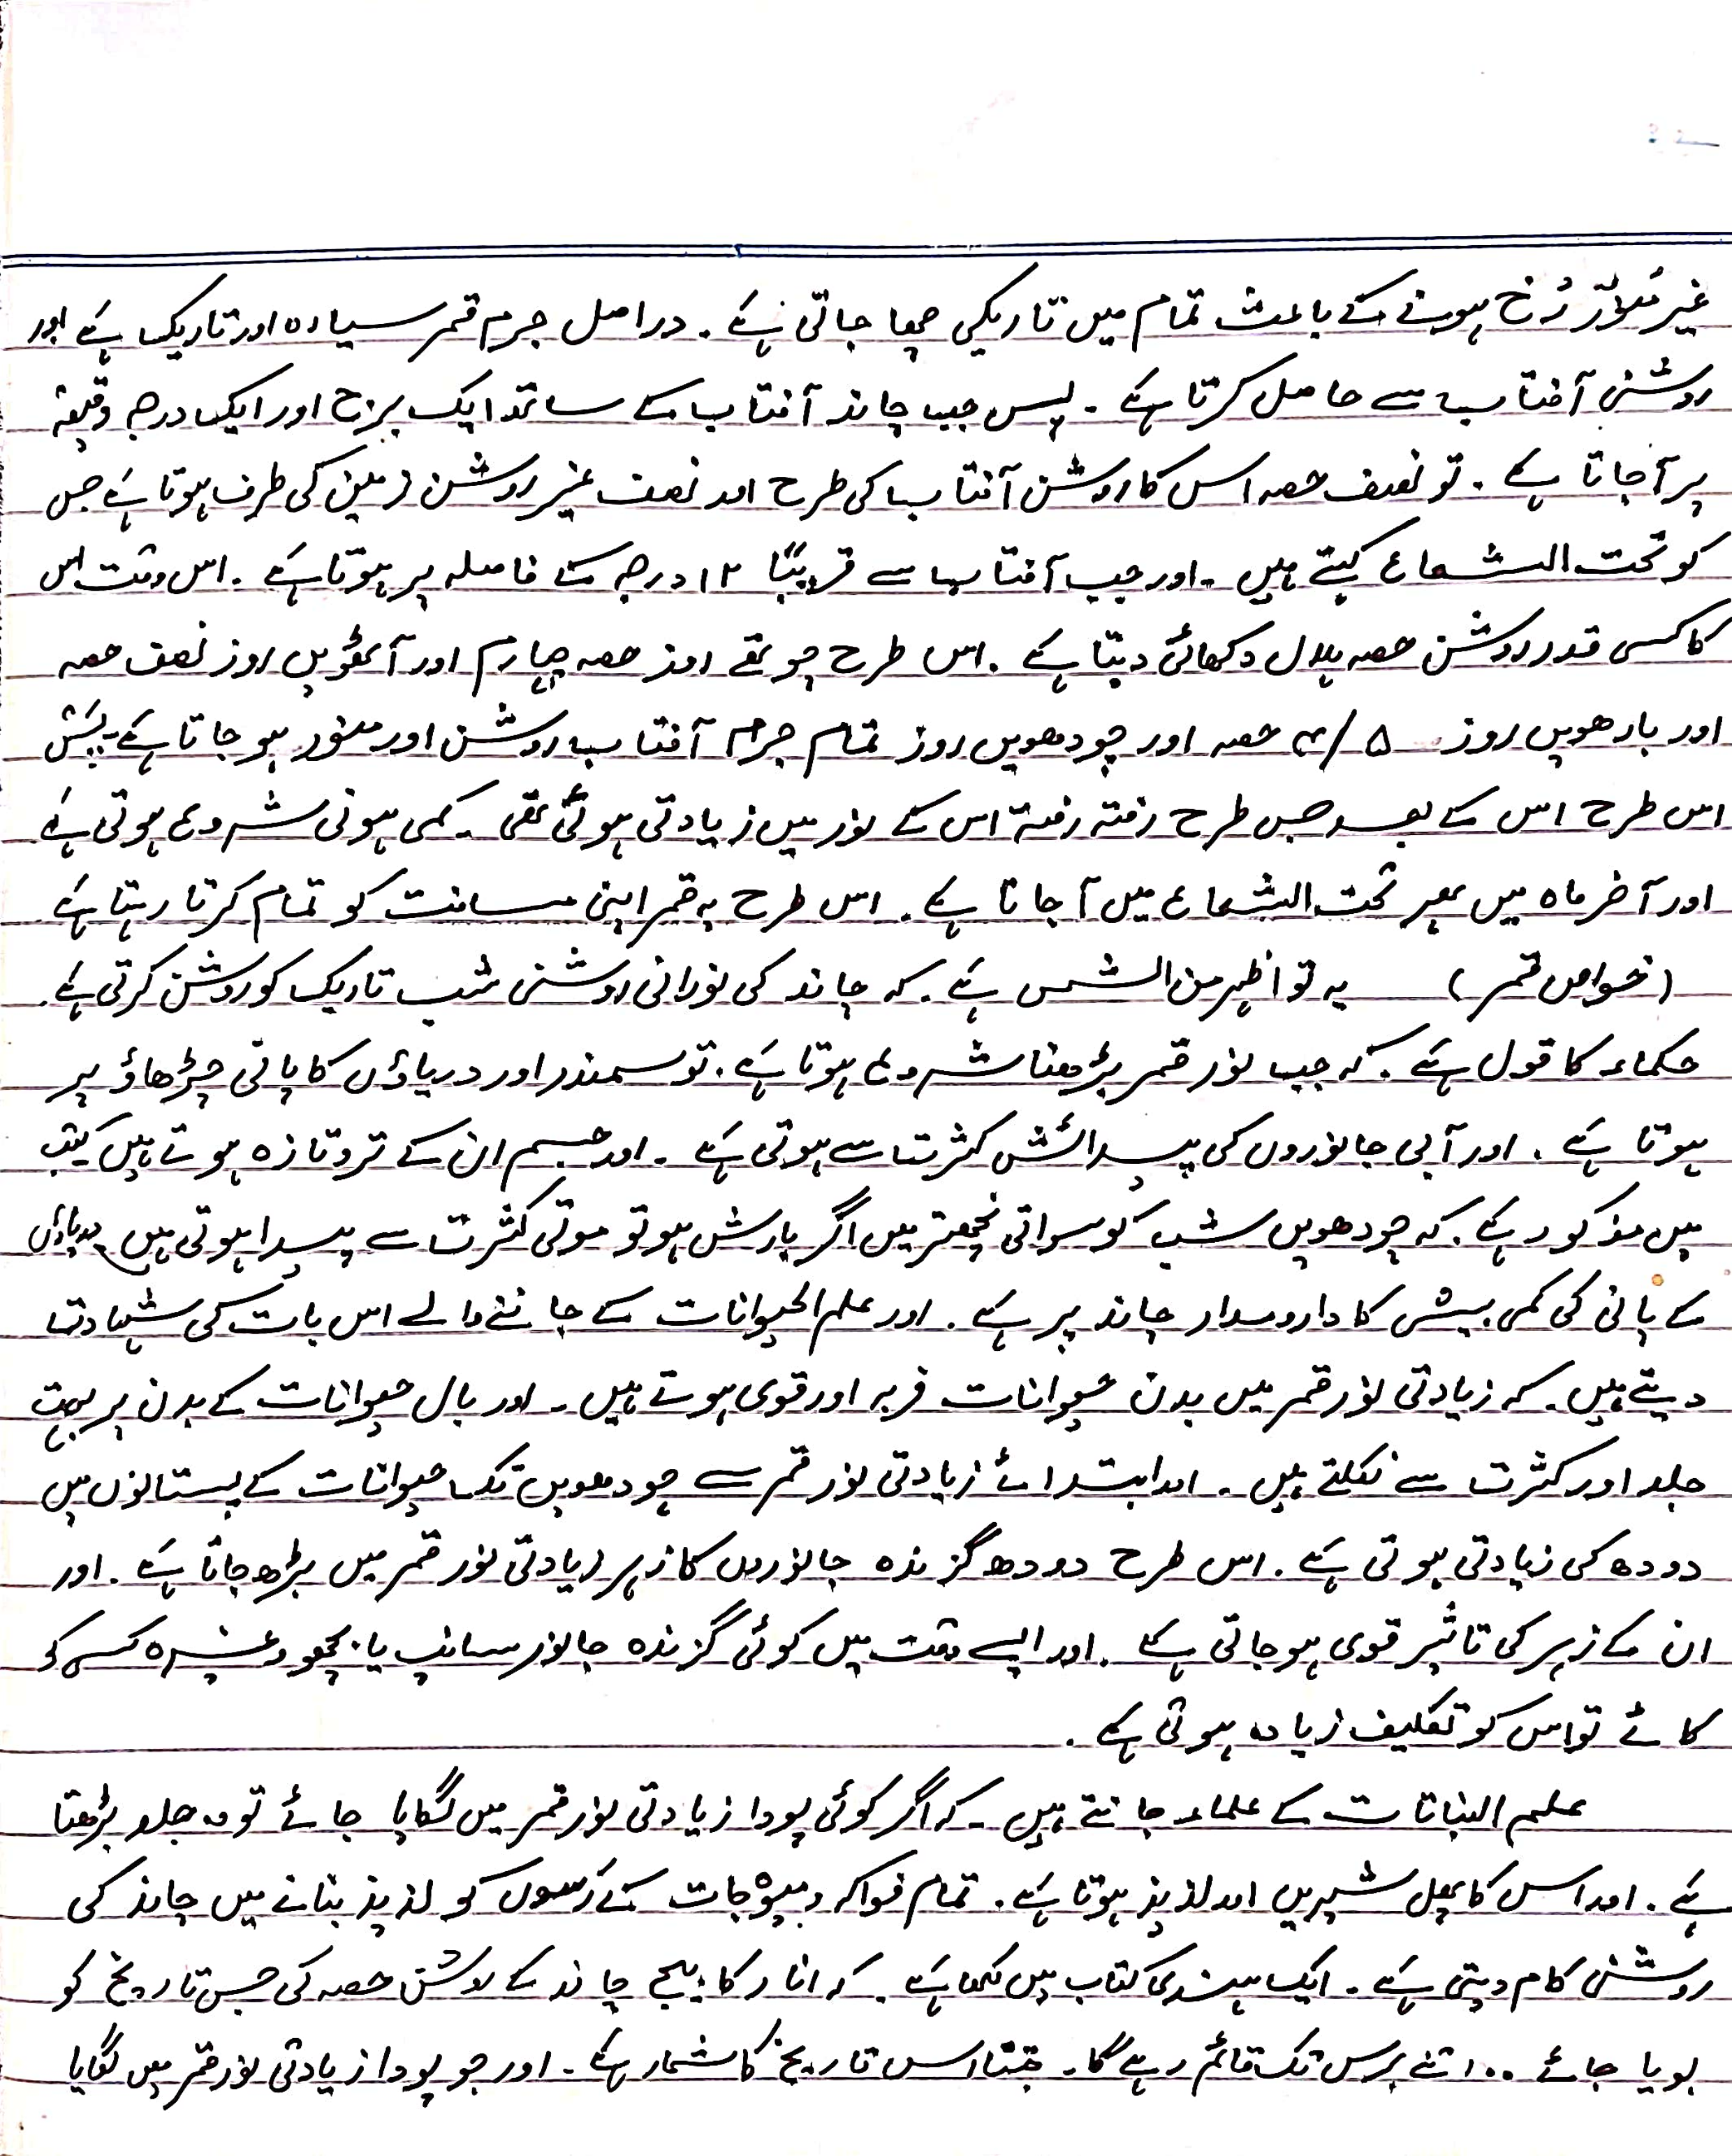 غیر منوّر رُخ ہونے کے باعث تمام میں تاریکی چھا جاتی ہے۔ دراصل جرم قمر سیاہ اور تاریک ہے اور
روشنی آفتاب سے حاصل کرتا ہے۔ پس جب چاند آفتاب کے ساتھ ایک برج اور ایک درجہ دقیقہ
پر آجاتا ہے۔ تو نصف حصہ اس کا روشن آفتاب کی طرح اور نصف غیر روشن زمین کی طرف ہوتا ہے جس
کو تحت الشعاع کہتے ہیں۔ اور جب آفتاب سے قریباً ۱۲ درجہ کے فاصلہ پر ہوتا ہے۔ اس وقت اس
کا کسی قدر روشن حصہ ہلال دکھائی دیتا ہے۔ اس طرح چوتھے روز حصہ چہارم اور آٹھویں روز نصف حصہ
اور بارھویں روز ۵/۴ حصہ اور چودھویں روز تمام جرم آفتاب روشن اور منور ہو جاتا ہے۔
اس طرح اس کے بعد جس طرح رفتہ رفتہ اس کے نور میں زیادتی ہوئی تھی۔ کمی ہونی شروع ہوتی ہے
اور آخر ماہ میں پھر تحت الشعاع میں آ جاتا ہے۔ اس طرح یہ قمر اپنی مسافت کو تمام کرتا رہتا ہے
(خواص قمر) یہ تو اظہر من الشمس ہے۔ کہ چاند کی نورانی روشنی شب تاریک کو روشن کرتی ہے۔
حکماء کا قول ہے۔ کہ جب نور قمر بڑھنا شروع ہوتا ہے۔ تو سمندر اور دریاؤں کا پانی چڑھاؤ پر
ہوتا ہے۔ اور آبی جانوروں کی پیدائش کثرت سے ہوتی ہے۔ اور جسم ان کے تروتازہ ہوتے ہیں کتب
میں مذکور ہے۔ کہ چودھویں شب کو سواتی نچھتر میں اگر بارش ہو تو موتی کثرت سے پیدا ہوتی ہیں دریاؤں
کے پانی کی کمی بیشی کا دارومدار چاند پر ہے۔ اور علم الحیوانات کے جاننے والے اس بات کی شہادت
دیتے ہیں۔ کہ زیادتی نور قمر میں بدن حیوانات فربہ اور قوی ہوتے ہیں۔ اور بال حیوانات کے بدن پر بہت
جلد اور کثرت سے نکلتے ہیں۔ اور ابتدائے زیادتی نور قمر سے چودھویں تک حیوانات کے پستانوں میں
دودھ کی زیادتی ہوتی ہے۔ اس طرح دودھ گزندہ جانوروں کا زہر زیادتی نور قمر میں بڑھ جاتا ہے۔ اور
ان کے زہر کی تاثیر قوی ہو جاتی ہے۔ اور ایسے وقت میں کوئی گزندہ جانور سانپ یا بچھو وغیرہ کسی کو
کاٹے تو اس کو تکلیف زیادہ ہوتی ہے۔
علم النباتات کے علماء جانتے ہیں۔ کہ اگر کوئی پودا زیادتی نور قمر میں لگایا جائے تو وہ جلد بڑھتا
ہے۔ اور اس کا پھل شیریں اور لذیذ ہوتا ہے۔ تمام فواکہ و میوہ جات کے رَسوں کو لذیذ بنانے میں چاند کی
روشنی کام دیتی ہے۔ ایک ہندی کتاب میں لکھا ہے۔ کہ انار کا بیج چاند کے روشن حصہ کی جس تاریخ کو
بویا جائے ۔۔ اتنے برس تک قائم رہے گا۔ جتنا اس تاریخ کا شمار ہے۔ اور جو پودا زیادتی نور قمر میں لگایا